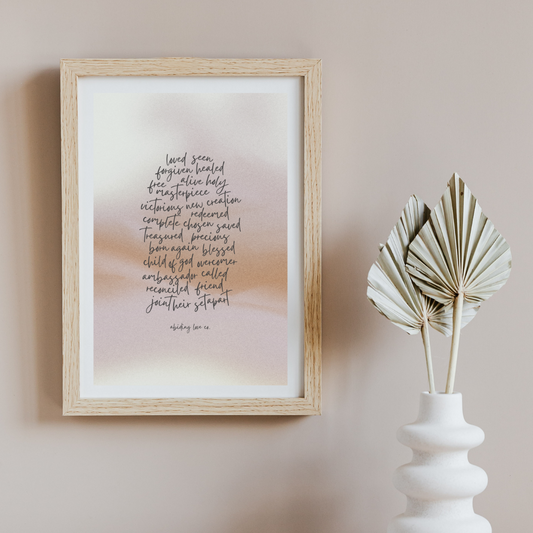 loved seen
forgiven healed
free alive holy
masterpiece
victorious new creation
redeemed
complete chosen saved
Treasured precious
born again blessed
child of god overcomer
ambassador called
reconciled friend
joint heir set apart
abiding love co.